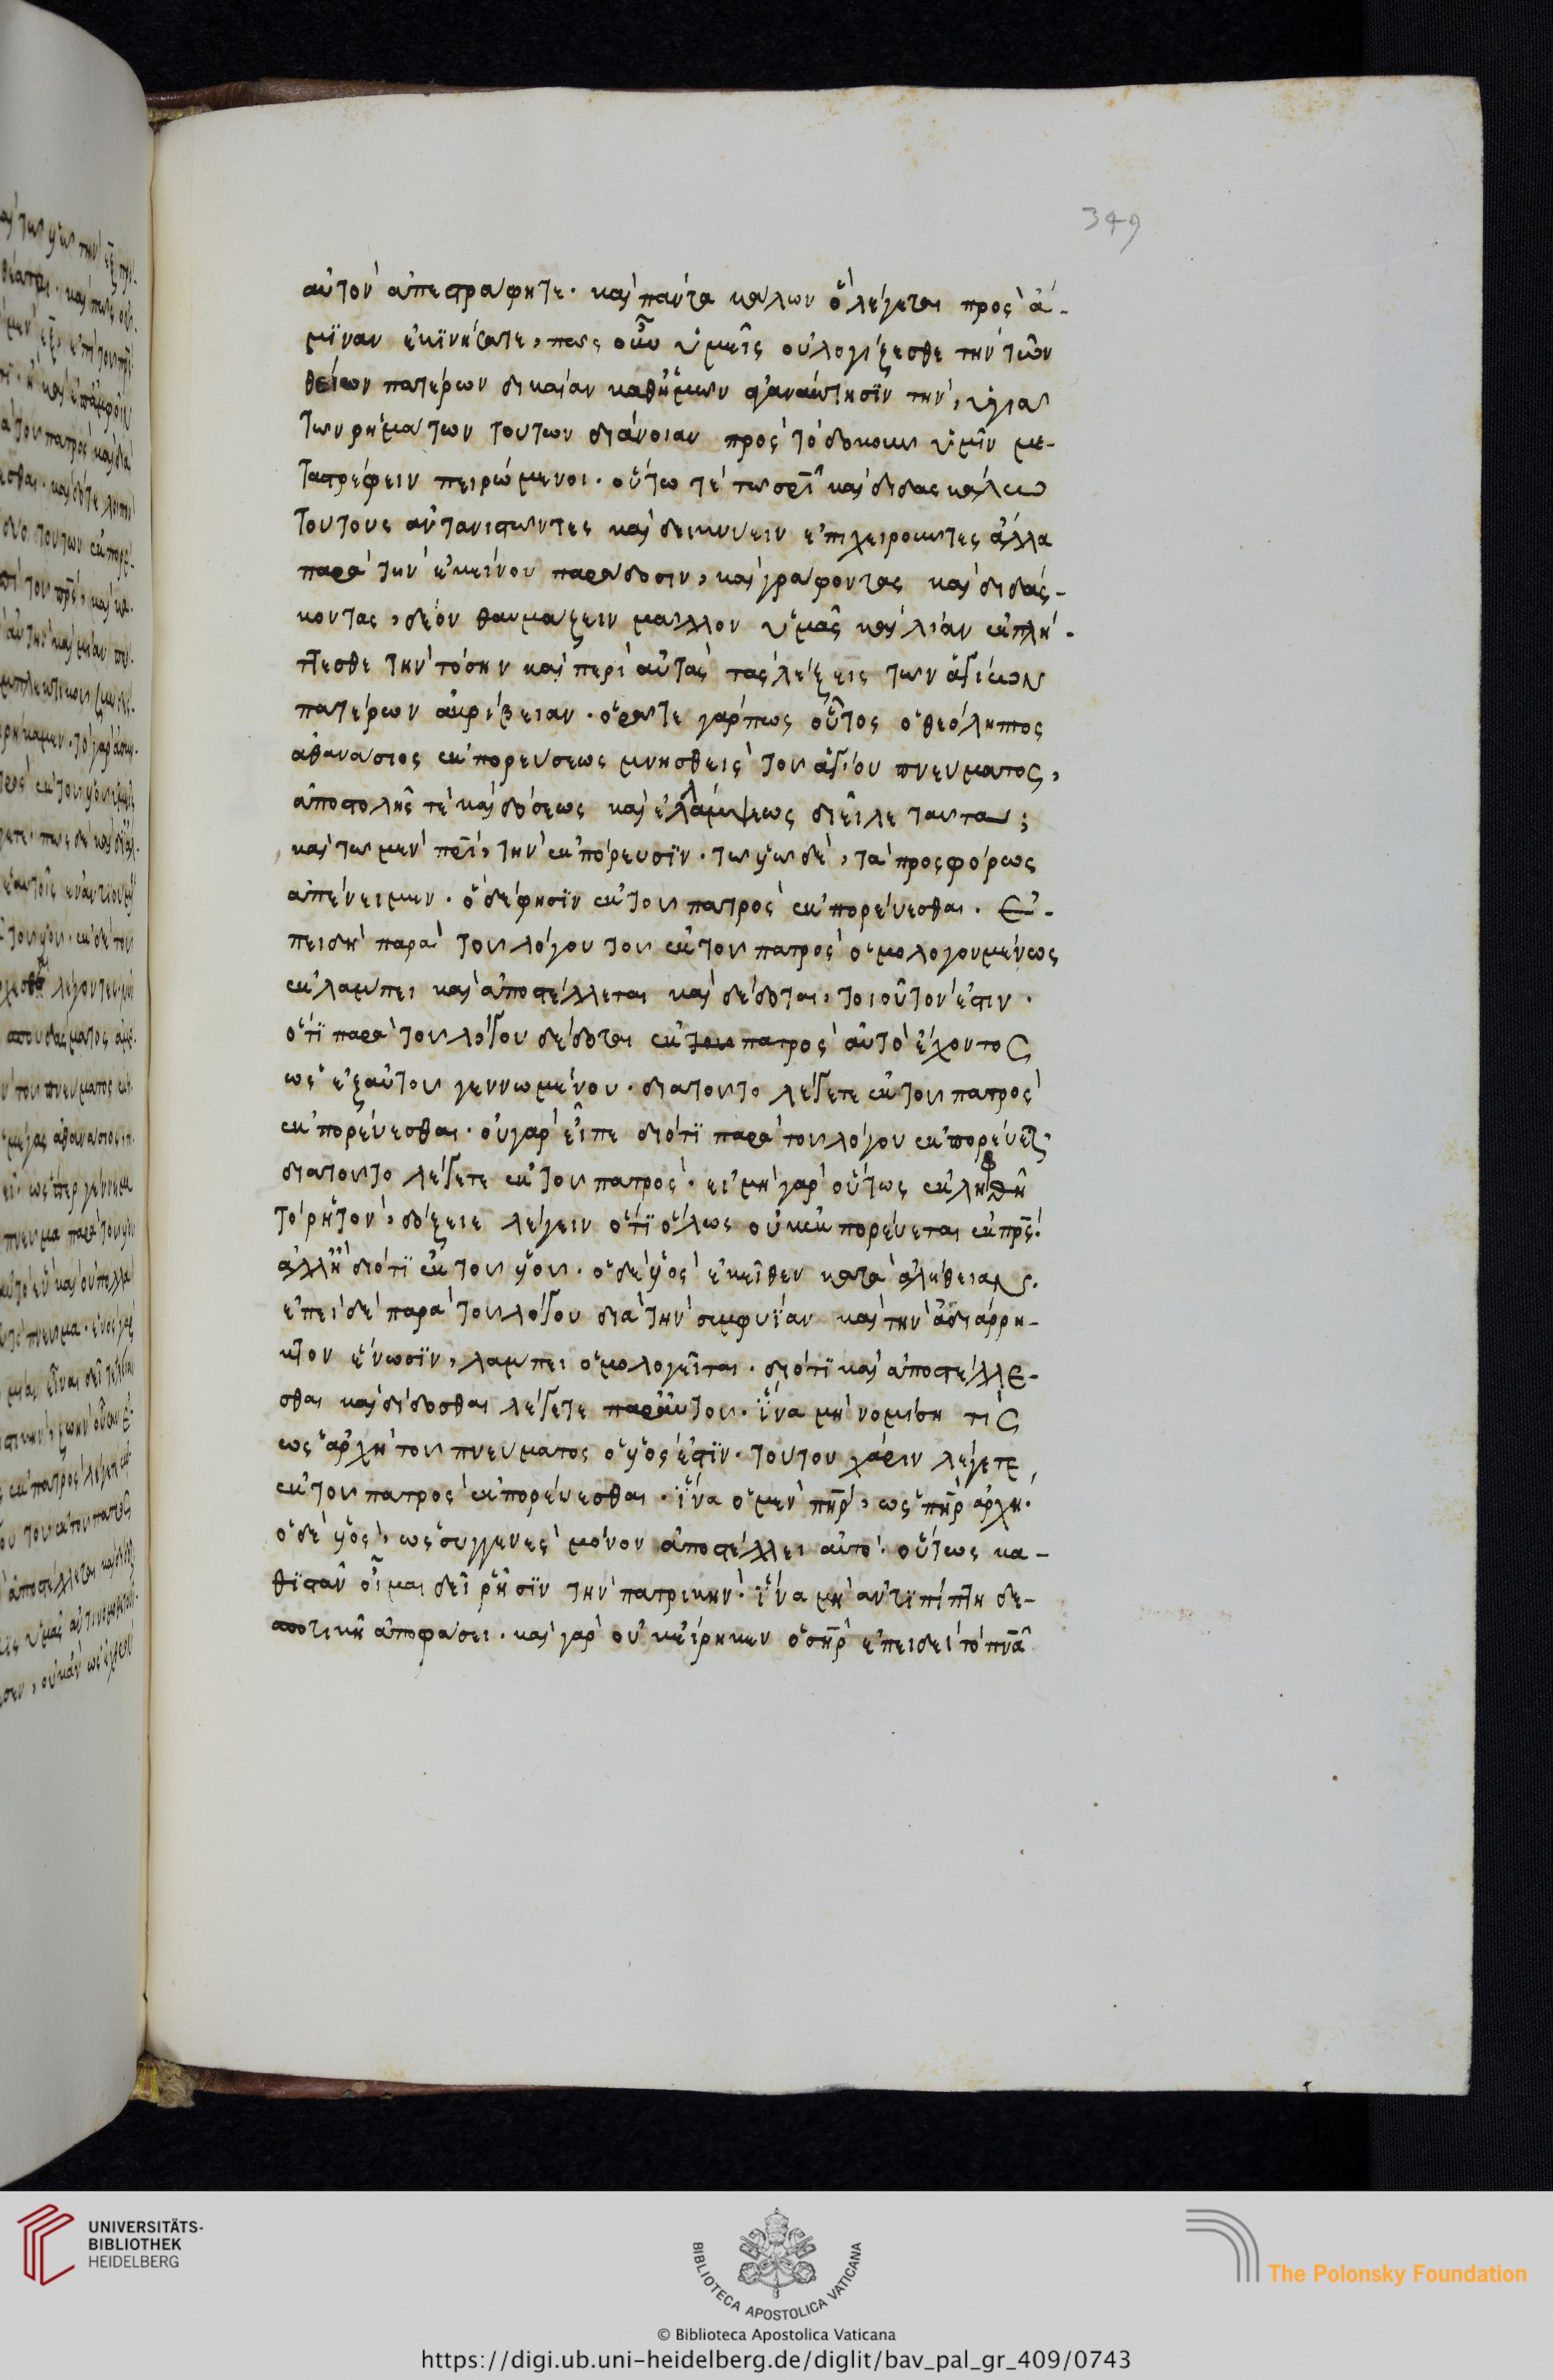 349
αὐτὸν ἀπεστράφητε· καὶ πάντα κάλων ὃ λέγεται πρὸς ἄ-
μϊναν ἐκϊνήσατε, πως οὖν ὑμεῖς οὐ λογίζεσθε τὴν τῶν
θείων πατέρων δικαίαν καθ' ἡμῶν ἀγανάκτησϊν τὴν, ὑγιᾶ
των ρημάτων τούτων διάνοιαν πρὸς τὸ δοκοῦν ὑμῖν με-
ταστρέφειν πειρώμενοι· οὕτω τὲ τω σρῖ καὶ διδασκάλω
τούτους ἀντανιστῶντες καὶ δεικνύειν ἐπιχειροῦντες ἄλλα
παρὰ τὴν ἐκείνου παράδοσιν, καὶ γράφοντας καὶ διδάσ-
κοντας, δέον θαυμάζειν μᾶλλον ὑμᾶς καὶ λίαν ἐκπλή-
ττεσθε τὴν τόσην καὶ περὶ αὐτὰς τὰς λέξεις των ἁγίων
πατέρων ἀκρίβειαν· ὁρᾶτε γὰρ πως οὗτος ὁ θεόληπτος
ἀθανάσιος ἐκπορεύσεως μνησθεὶς τοῦ ἁγίου πνεύματος,
ἀποστολῆς τὲ καὶ δόσεως καὶ ἐλλάμψεως διεῖλε ταῦτα;
καὶ τω μὲν πρῒ, τὴν ἐκπόρευσϊν· τω υἱω δὲ, τὰ προσφόρως
ἀπένειμεν· ὃ δέ φησϊν ἐκ τοῦ πατρὸς ἐκπορεύεσθαι· Ἐ-
πειδὴ παρὰ τοῦ λόγου τοῦ ἐκ τοῦ πατρὸς ὁμολογουμένως
ἐκλάμπει καὶ ἀποστέλλεται καὶ δέδοται, τοιοῦτον ἐστιν·
ὅτϊ παρὰ τοῦ λόγου δέδοται ἐκ του πατρὸς αὐτὸ ἔχοντος
ως ἐξ αὐτοῦ γεννωμένου· διὰ τοῦτο λέγεται ἐκ τοῦ πατρὸς
ἐκπορεύεσθαι· οὐ γὰρ εἶπε διότϊ παρὰ τοῦ λόγου ἐκπορεύεται
διὰ τοῦτο λέγεται ἐκ τοῦ πατρὸς· εἰ μὴ γὰρ οὕτως ἐκληφθῆ
τὸ ρητὸν, δόξειε λέγειν ὅτϊ ὅλως οὐκ ἐκπορεύεται ἐκ πρς·
ἀλλ' ἢ διότϊ ἐκ τοῦ υἱοῦ· ὁ δὲ υἱὸς ἐκεῖθεν κατὰ ἀλήθειαν·
ἐπεὶ δὲ παρὰ τοῦ λόγου διὰ τὴν συμφυΐαν καὶ τὴν ἀδιάρρη-
κτον ἕνωσϊν, λάμπει ὁμολογεῖται· διότϊ καὶ ἀποστέλλε-
σθαι καὶ δίδοσθαι λέγεται παρ' αὐτοῦ· ἵνα μὴ νομίση τὶς
ως ἀρχὴ τοῦ πνεύματος ὁ υἱὸς ἐστϊν· τούτου χάριν λέγεται
ἐκ τοῦ πατρὸς ἐκπορεύεσθαι· ἵνα ὁ μὲν πῆρ, ως πῆρ ἀρχή·
ὁ δὲ υἱὸς, ως συγγενὲς μόνον ἀποστέλλει αὐτὸ· οὕτως κα-
θϊστᾶν οἶμαι δεῖ ρῆσϊν τὴν πατρικὴν· ἵνα μὴ ἀντϊπίπτη δε-
σποτικῆ ἀποφάσει· καὶ γὰρ οὐκ εἴρηκεν ὁ σῆρ ἐπειδεὶ τὸ πνᾶ
UNIVERSITÄTS-
BIBLIOTHEK
HEIDELBERG
BIBLIOTECA APOSTOLICA VATICANA
The Polonsky Foundation
© Biblioteca Apostolica Vaticana
https://digi.ub.uni-heidelberg.de/diglit/bav_pal_gr_409/0743